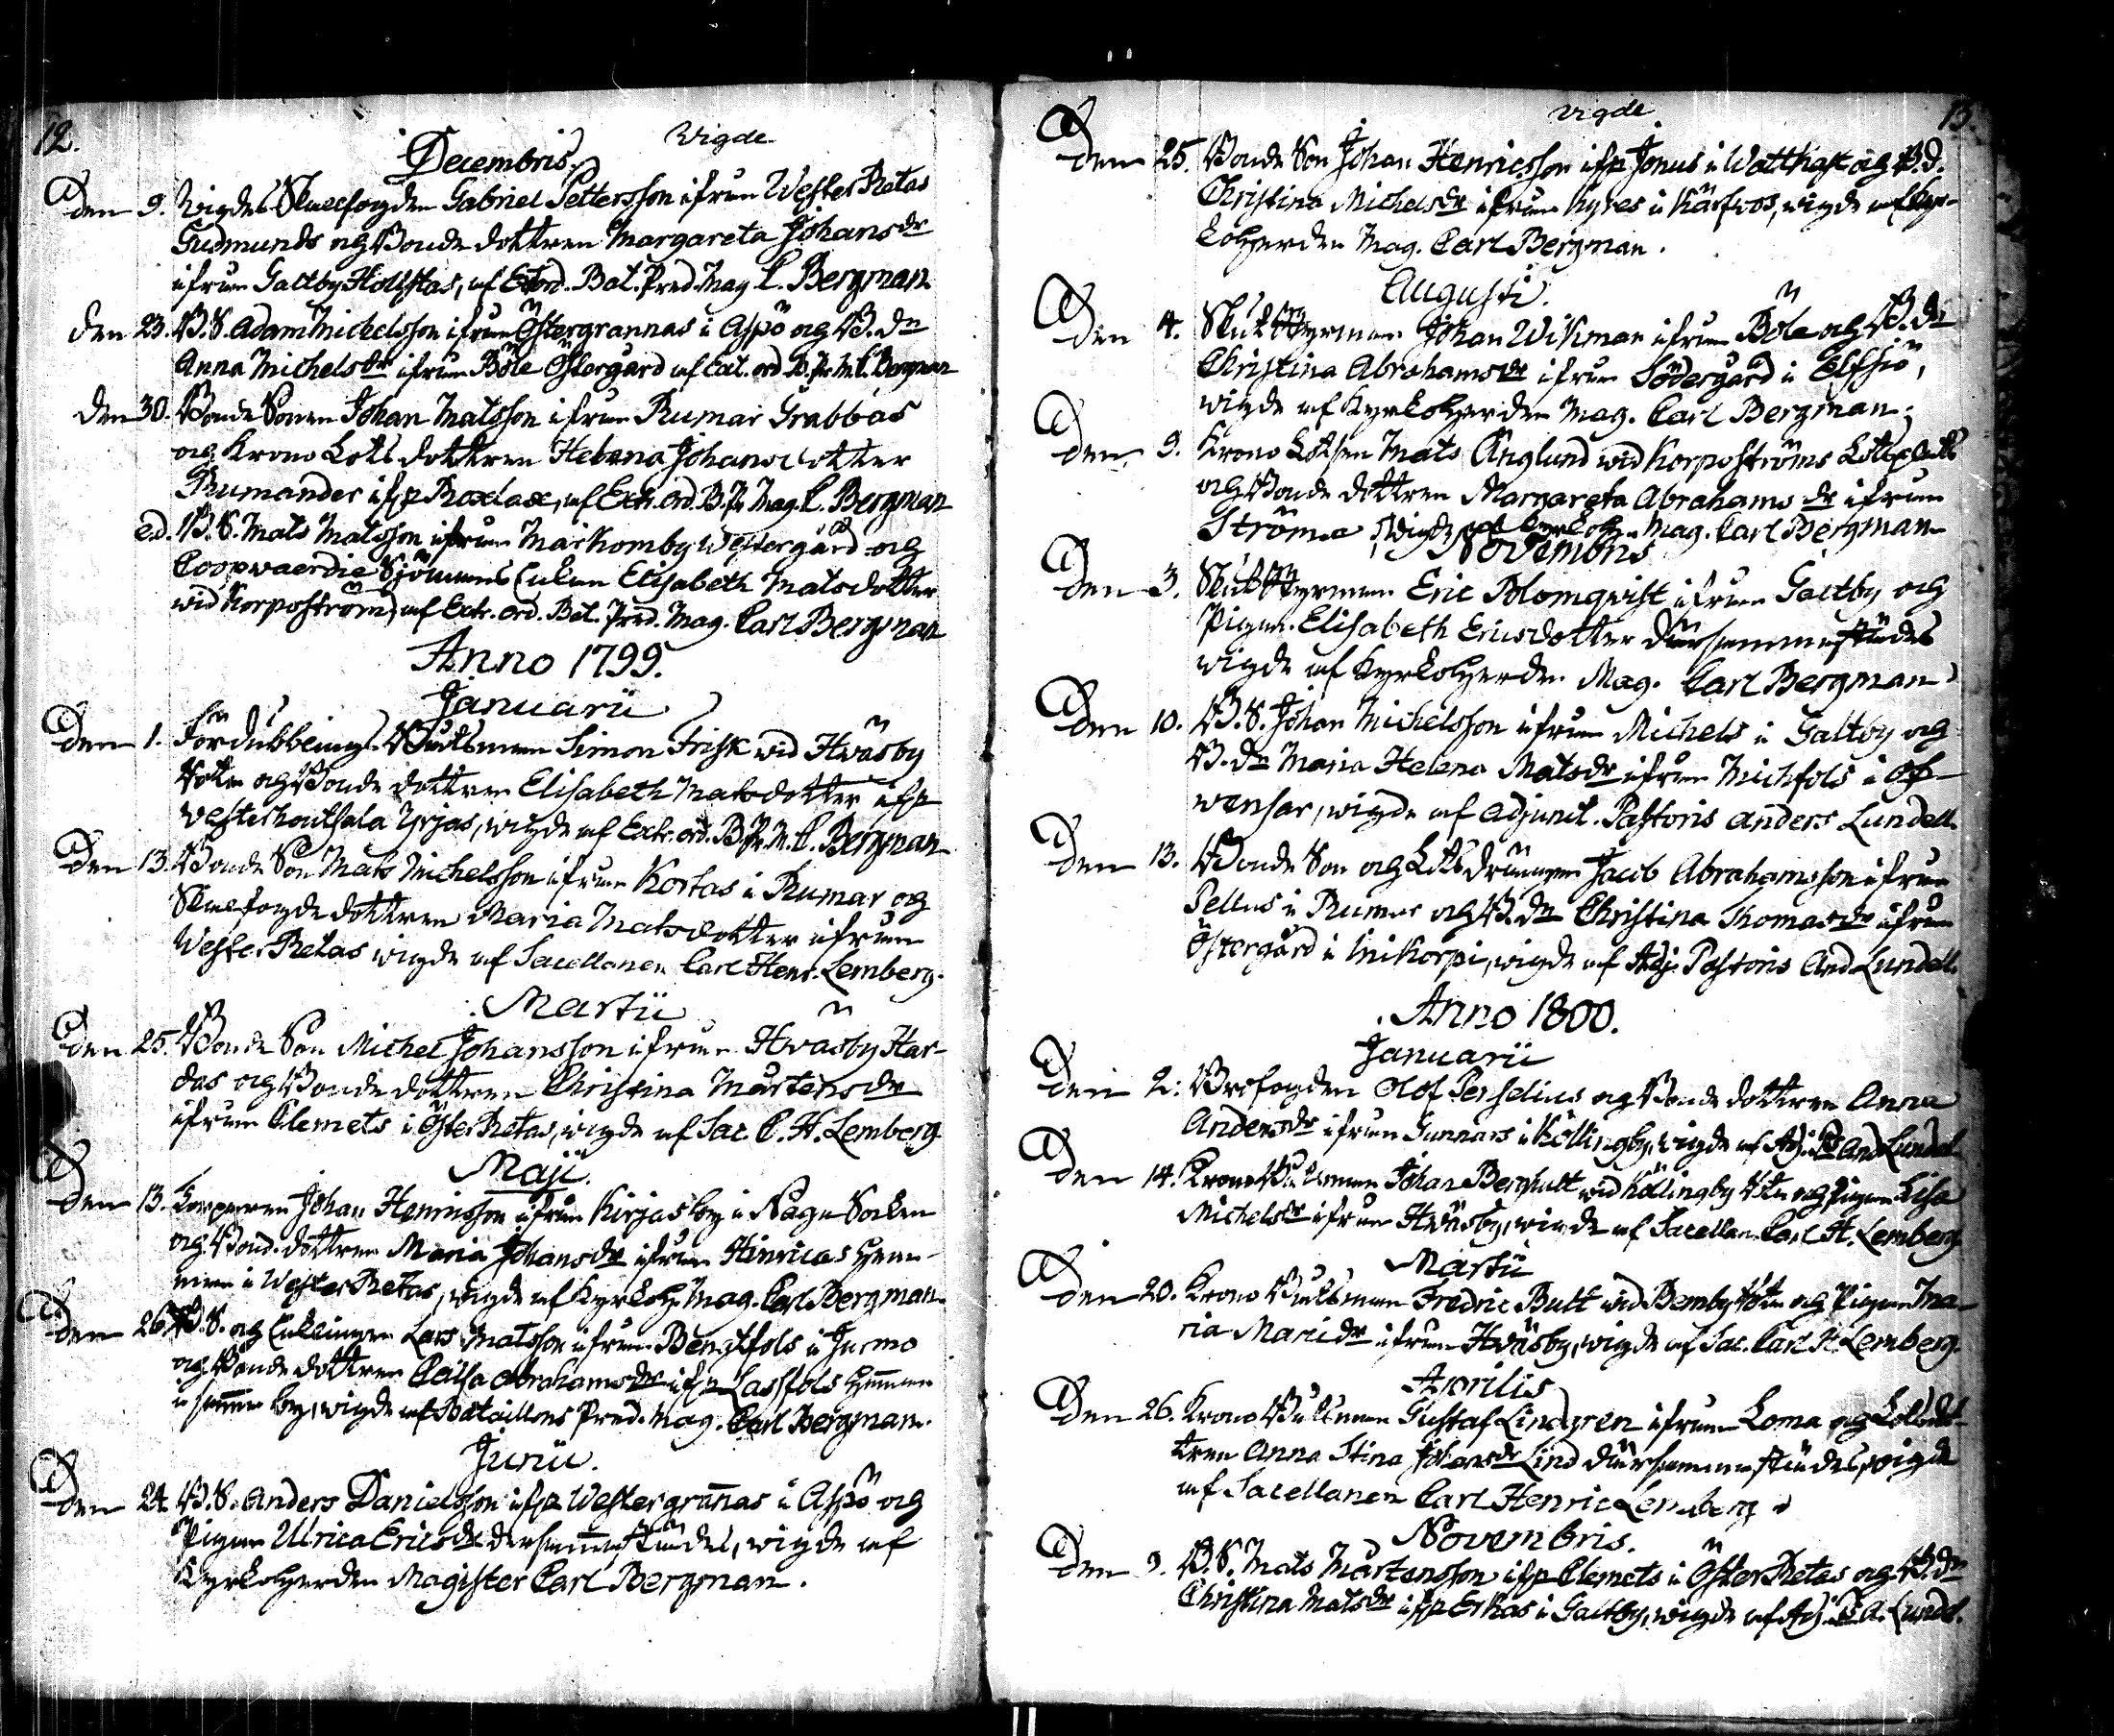 12.
Vigde
Decembris
Den 9. Vigdes Skallfogden Gabriel Pettersson ifrån Wester Retas
Gudmunds och Bonde dottren Margareta Johansdr
ifrån Galtby Hollstas, af Extrord. Bat. Pred. Mag. C. Bergman
Den 23. B. S. Adam Michelsson ifrån Östergrannas i Aspö och B. dn
Anna Michelsdr ifrån Böle Östergård af Ext. ord. B. Pr. M. C. Bergman
Den 30. Bonde Sonen Johan Matsson ifrån Rumar Grabbas
och Krono Lots dottren Helena Johansdotter
Rumander ifrn Roslax, af Extr. ord. B. Pr. Mag. C. Bergman
ed. B. S. Mats Matsson ifrån Markomby Westergård och
Coopvaerdie Sjömans Enkan Elisabeth Matsdotter
wid Korpoström, af Extr. ord. Bat. Pred. Mag. Carl Bergman
Anno 1799.
Januarii
Den 1. Fördubblings Båtsman Simon Frisk wid Hväsby
Rote och Bonde dottren Elisabeth Matsdotter ifrn
Westerhoutsala Yrjas, wigde af Extr. ord. B. Pr. M. C. Bergman
Den 13. Bonde Son Mats Michelsson ifrån Kostas i Rumar och
Skallfogde dottren Maria Matsdotter ifrån
Wester Retas wigde af Sacellanen Carl Henr. Lemberg.
Martii
Den 25. Bonde Son Michel Johansson ifrån Hväsby Har-
das och Bonde dottren Christina Mårtensdr
ifrån Clemets i Öster Retas, wigde af Sac. C. H. Lemberg
Maji.
Den 13. Johan Henricsson ifrån Kirjasby i Nagu Socken
och Bond. dottren Maria Johansdr ifrån Hinricas Hem-
man i Wester Retas, wigde af Kyrkoh. Mag. Carl Bergman.
Den 26. B. S. och Enklingen Lars Matsson ifrån Bengtfols i Jurmo
och Bonde dottren Caisa Abrahamsdr ifrn Lassfols Hemman
i samma by, wigde af Bataillons Pred. Mag. Carl Bergman.
Junii.
Den 24. B. S. Anders Danielsson ifrn Westergrannas i Aspö och
Pigan Ulrica Ericsdr dersammastädes, wigde af
Kyrkoherden Magister Carl Bergman.
Vigde
13.
Den 25. Bonde Son Johan Henricsson ifrn Jonus i Watthast och B. d.
Christina Michelsdr ifrån Kyres i Kärfvos, wigde af Kyr-
koherden Mag. Carl Bergman.
Augusti.
Den 4. Skutstyrman Johan Wikman ifrån Böle och B. dn
Christina Abrahamsdr ifrån Södergård i Elfsiö,
wigde af Kyrkoherden Mag. Carl Bergman.
Den 9. Krono Lotsen Mats Änglund wid Korpoströms Lotsplats
och Bonde dottren Margareta Abrahamsdr ifrån
Strömma, wigde af Kyrkoh. Mag. Carl Bergman
Novembris
Den 3. Skutstyrman Eric Blomqvist ifrån Galtby och
Pigan Elisabeth Ericsdotter därsammastädes
wigde af Kyrkoherden Mag. Carl Bergman
Den 10. B. S. Johan Michelsson ifrån Michels i Galtby och
B. dn Maria Helena Matsdr ifrån Michfols i Öf-
wensar, wigde af Adjunct. Pastoris Anders Lundell.
Den 13. Bonde Son och Lotsdrängen Jacob Abrahamsson ifrån
Pellas i Rumar och B. dn Christina Thomasdr ifrån
Östergård i Inikorpi, wigde af Adj. Pastoris And Lundell.
Anno 1800.
Januarii
Den 2. Brofogden Olof Perselius och Bonde dottren Anna
Andersdr ifrån Gunnars i Köllingby, wigde af Adj. Ps And Lundel
Den 14. Krono Båtsman Johan Berghult wid Källingby Rote och Pigan Lisa
Michelsdr ifrån Hväsby, wigde af Sacellan. Carl H. Lemberg
Martii
Den 20. Krono Båtsman Fredric Butt wid Bemby Rote och Pigan Ma-
ria Marcidr ifrån Hväsby, wigde af Sac. Carl H. Lemberg.
Aprilis
Den 26. Krono Båtsman Gustaf Lindgren ifrån Loma och Lotsdot-
tren Anna Stina Johansdr Lind därsammastädes, wigde
af Sacellanen Carl Henric Lemberg
Novembris.
Den 9. B. S. Mats Mårtensson ifrn Clemets i Öster Retas och B. dn
Christina Matsdr ifrn Erkas i Galtby, wigde af Adj. Ps A. Lundel.